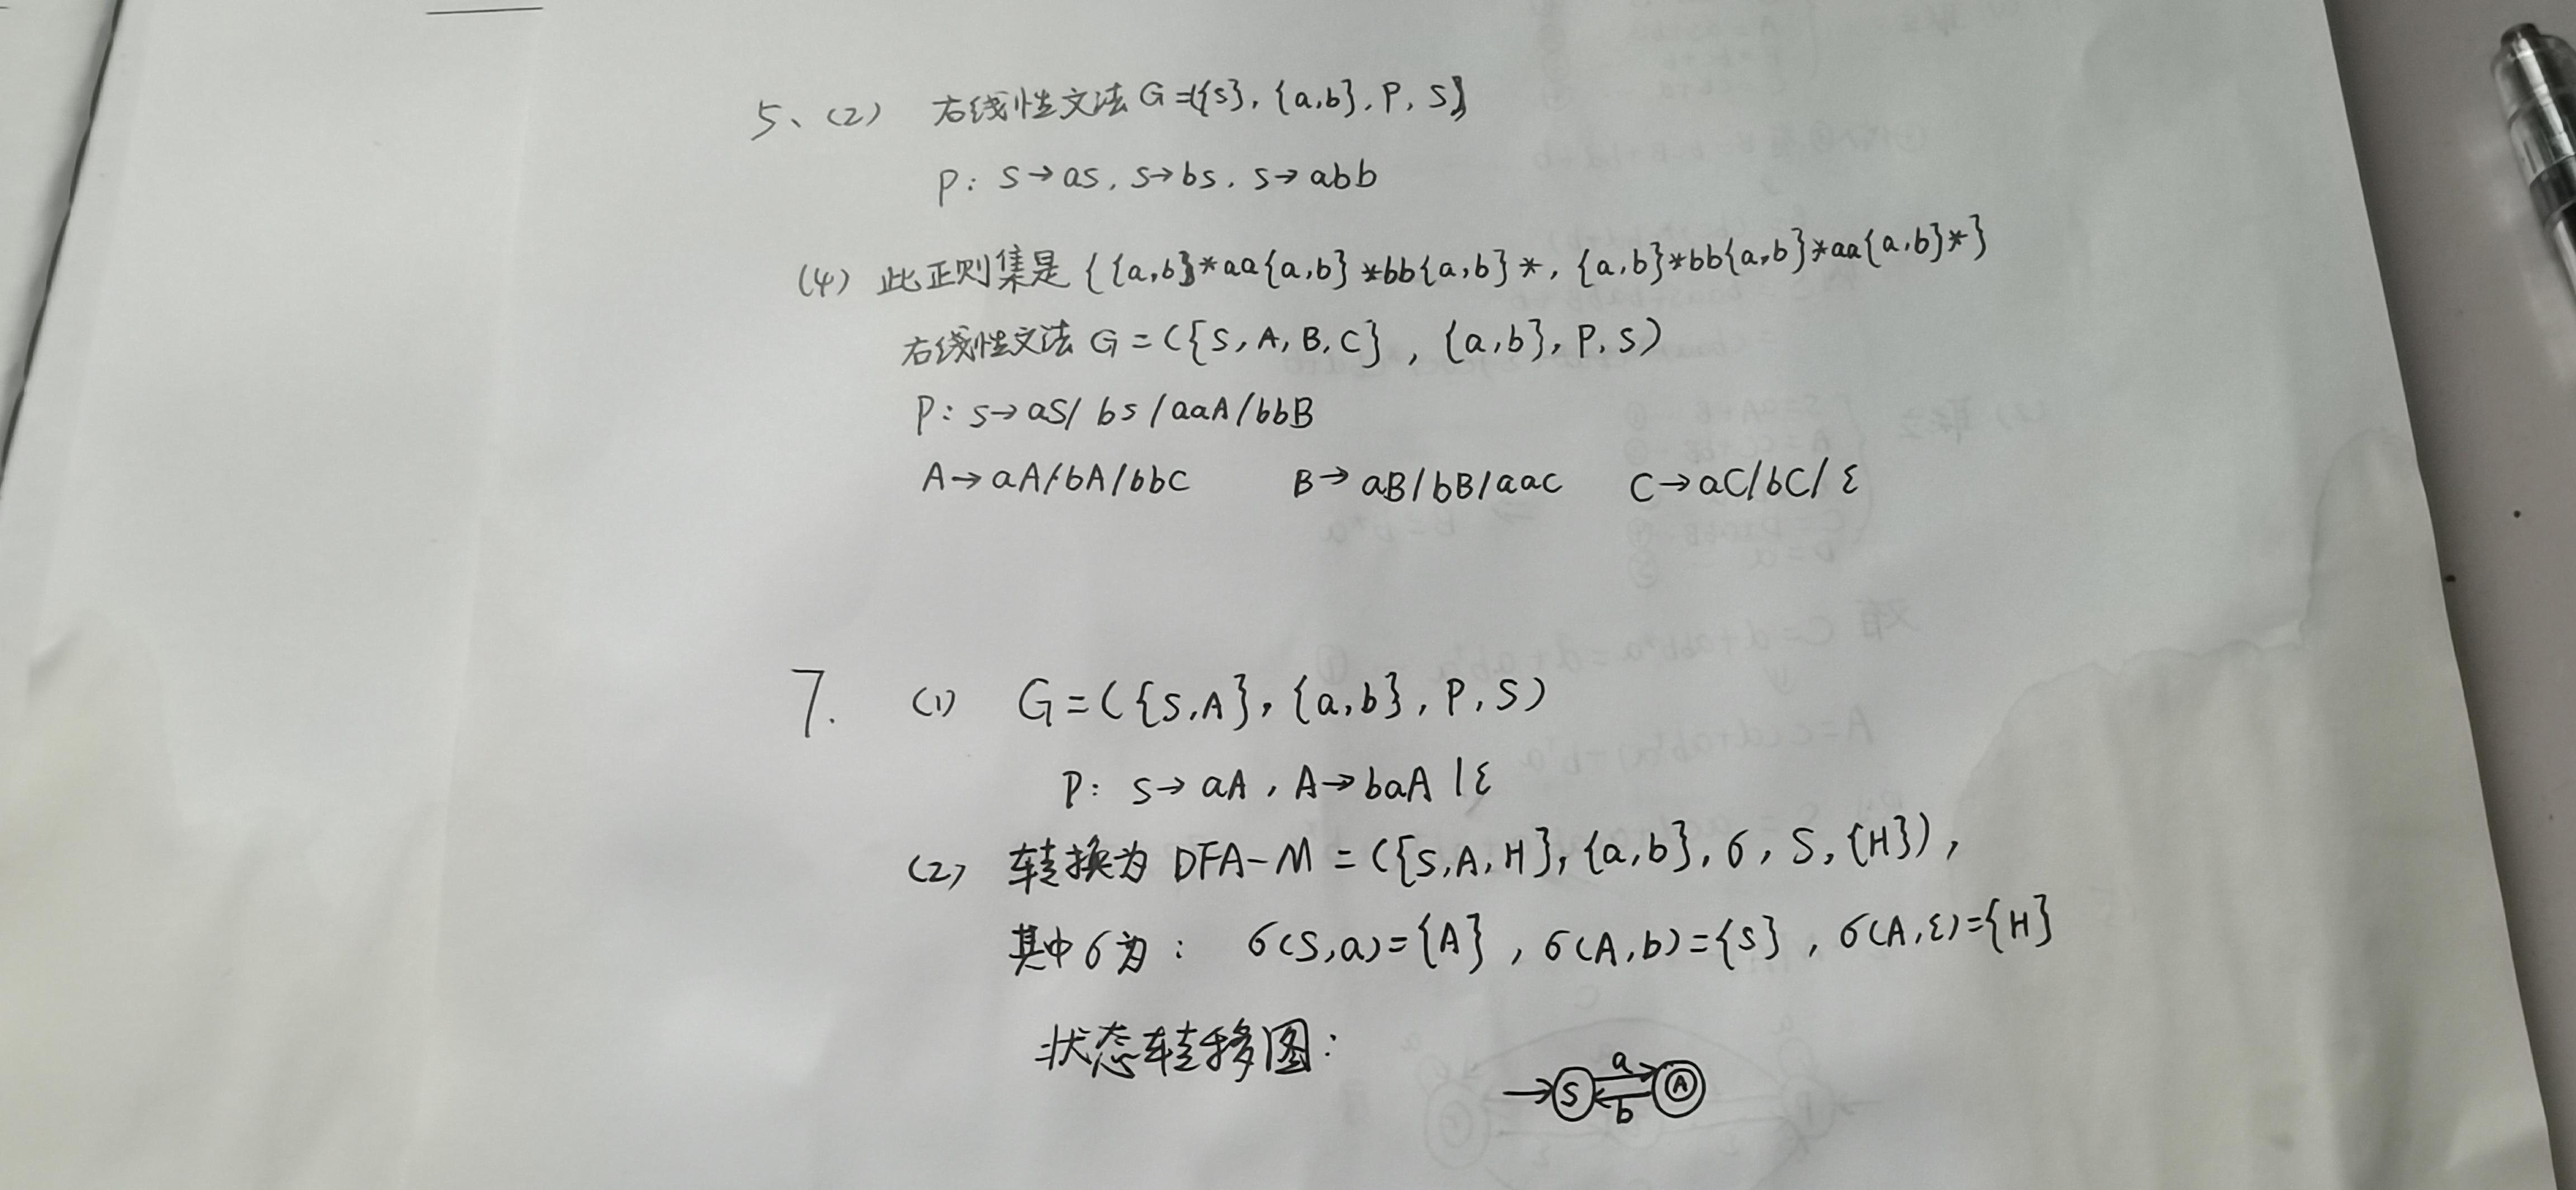 5、(2) 右线性文法 G=({S}, {a,b}, P, S)
P: S→aS, S→bS, S→abb
(4) 此正则集是 { {a,b}*aa{a,b}*bb{a,b}*, {a,b}*bb{a,b}*aa{a,b}*}
右线性文法 G=({S,A,B,C}, {a,b}, P, S)
P: S→aS/bS/aaA/bbB
A→aA/bA/bbC B→aB/bB/aaC C→aC/bC/ε
7. (1) G=({S,A}, {a,b}, P, S)
P: S→aA, A→baA|ε
(2) 转换为 DFA-M=({S,A,H}, {a,b}, б, S, {H}),
其中б为: б(S,a)={A}, б(A,b)={S}, б(A,ε)={H}
状态转移图:
S a b A